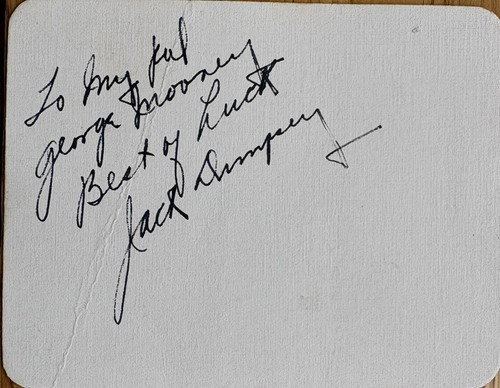 To My pal
George Mooney
Best of Luck
Jack Dempsey